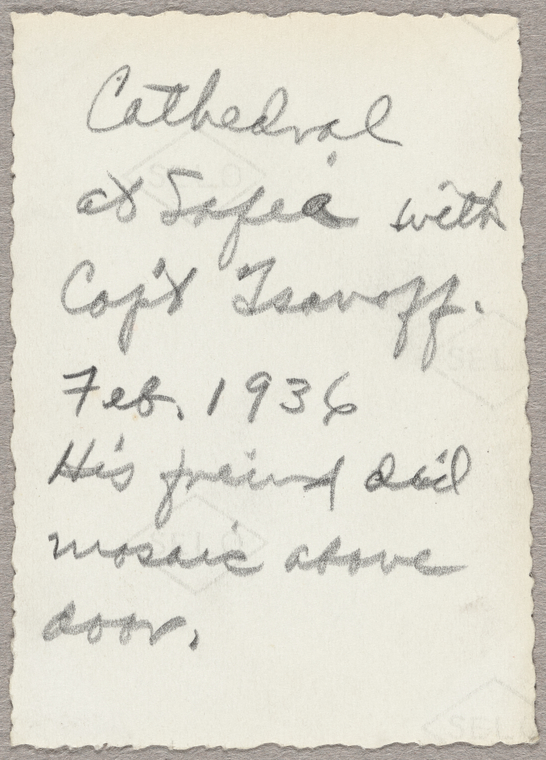 Cathedral
at Sofia with
Cap't Tsavoff.
Feb. 1936
His freind did
mosaic above
door.
SELO
SELO
SELO
SELO